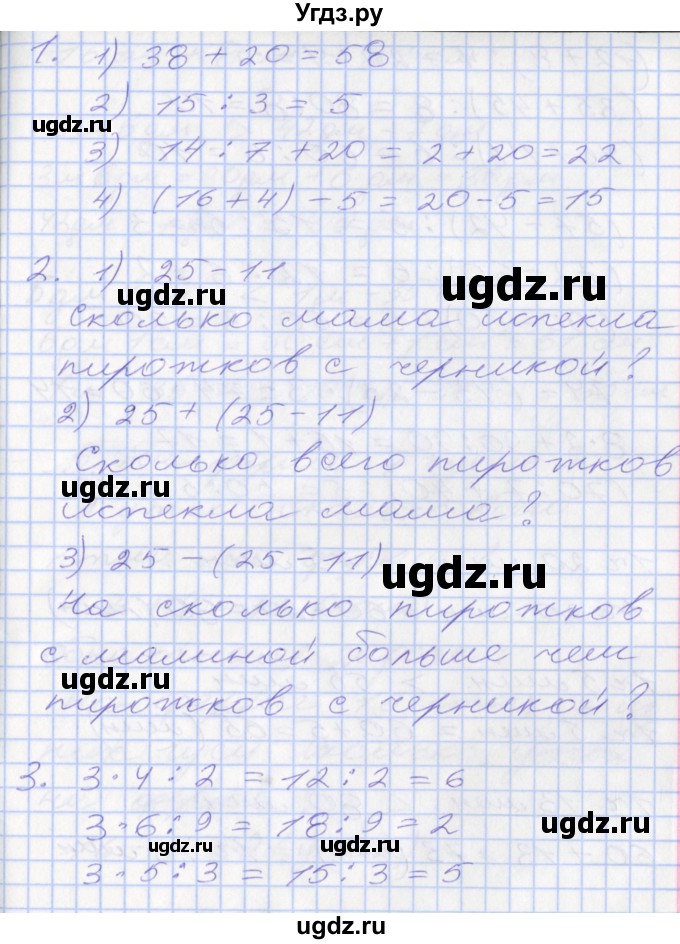 Угдз.ру
1. 1) 38 + 20 = 58
2) 15 : 3 = 5
ugdz.ru
3) 14 : 7 + 20 = 2 + 20 = 22
ugdz.ru
4) (16 + 4) - 5 = 20 - 5 = 15
2. 1) 25 - 11
ugdz.ru
ugdz.ru
Сколько мама испекла
пирожков с черникой?
2) 25 + (25 - 11)
Сколько всего пирожков
ugdz.ru
испекла мама?
3) 25 - (25 - 11)
ugdz.ru
На сколько пирожков
с малиной больше чем
ugdz.ru
пирожков с черникой?
3. 3 · 4 : 2 = 12 : 2 = 6
3 · 6 : 9 = 18 : 9 = 2
ugdz.ru
ugdz.ru
ugdz.ru
3 · 5 : 3 = 15 : 3 = 5
ugdz.ru